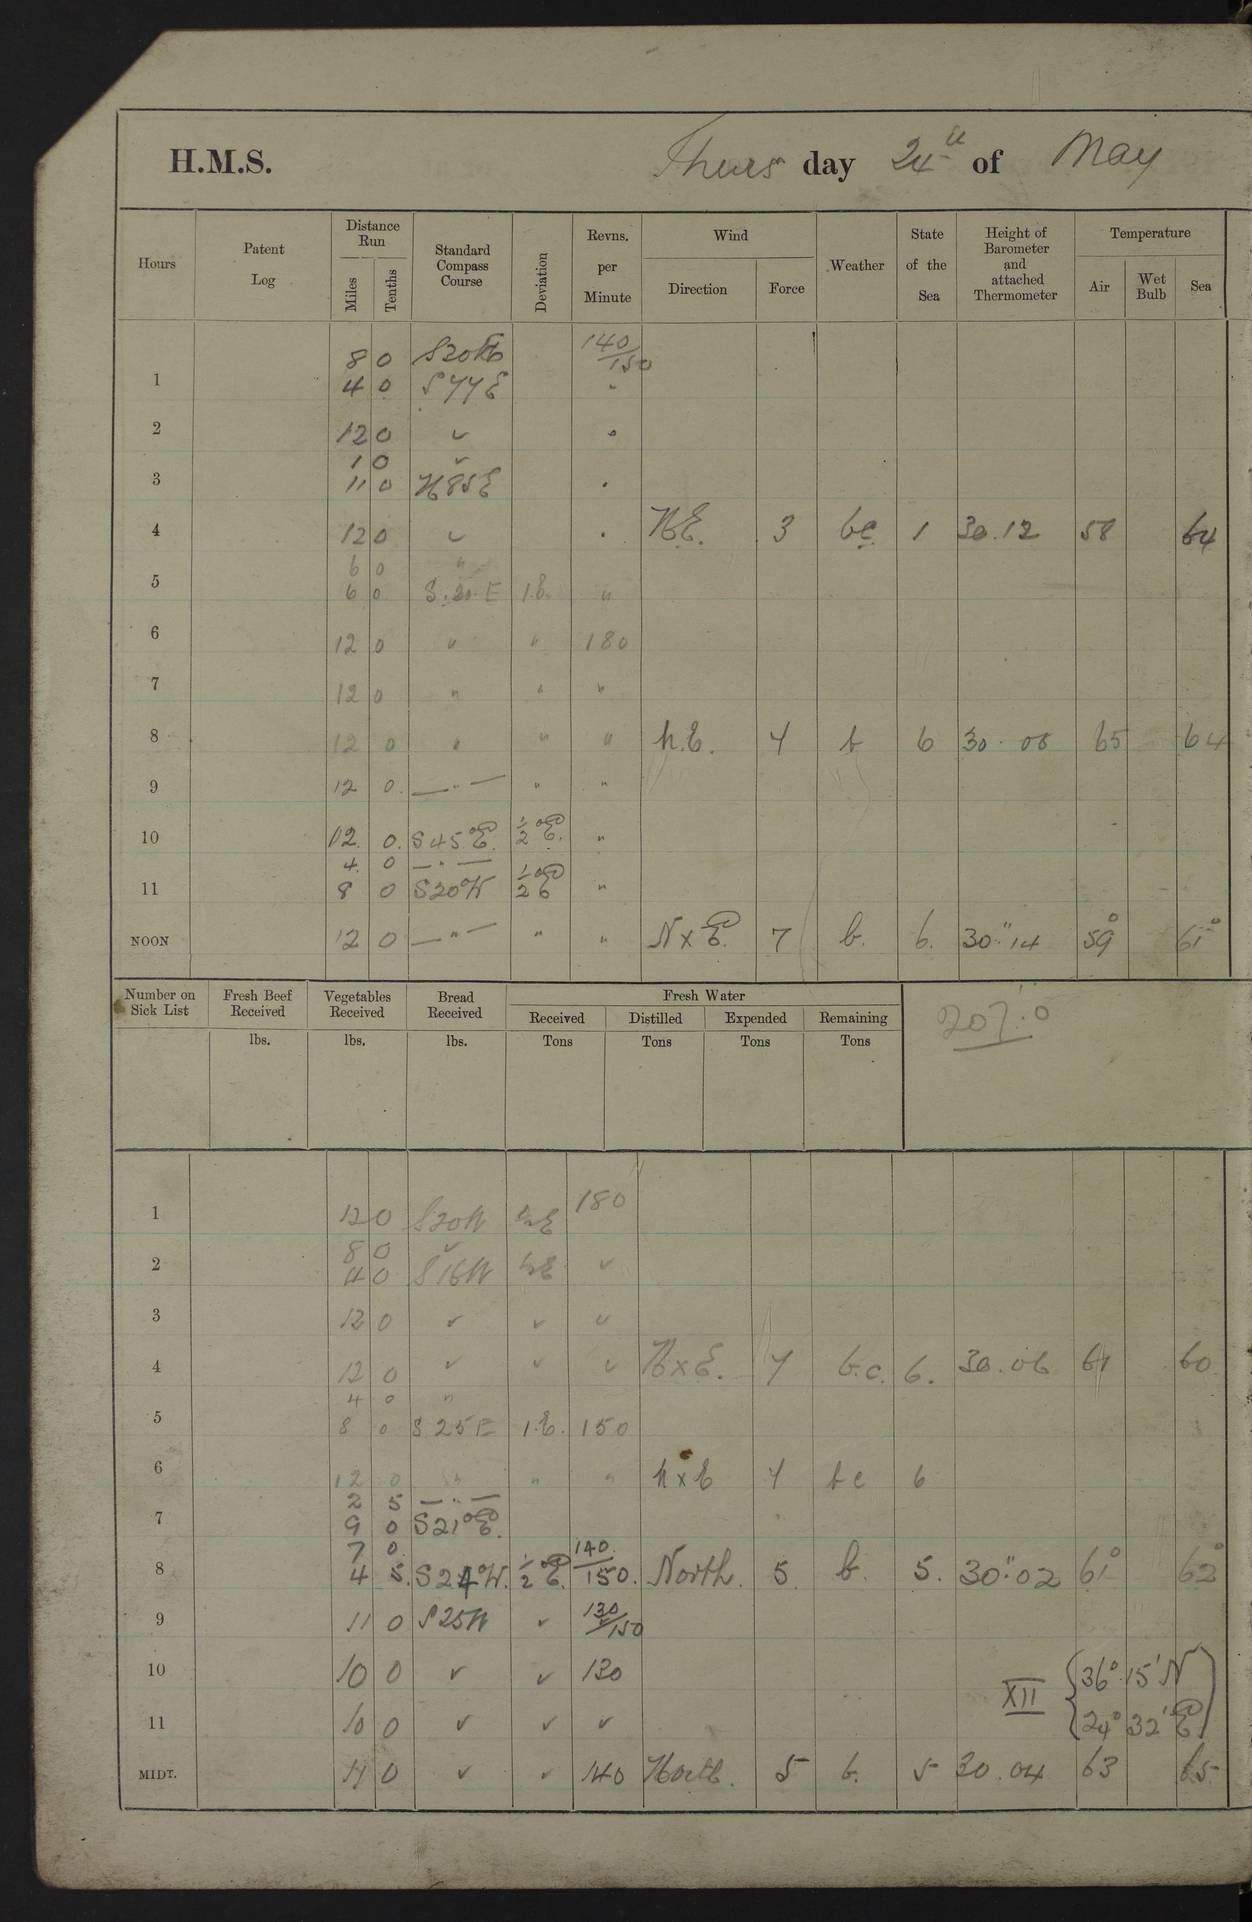 H.M.S. Thurs day 24th of May
Hours Patent Log Distance Run Miles Tenths Standard Compass Course Deviation Revns. per Minute Wind Direction Force Weather State of the Sea Height of Barometer and attached Thermometer Temperature Air Wet Bulb Sea
8 0 S20W 140/150
1 4 0 S77E "
2 12 0 " "
1 0 "
3 11 0 N85E "
4 12 0 " " NE. 3 bc 1 30.12 58 64
6 0 "
5 6 0 S.20.E 1.E. "
6 12 0 " " 180
7 12 0 " " "
8 12 0 " " " N.E. 7 b 6 30.08 65 64
9 12 0. —"— " "
10 12. 0. S45°E. ½°E. "
4. 0 —"—
11 8 0 S20°W ½°E "
NOON 12 0 —"— " " N x E. 7 b. 6. 30".14 59° 61°
Number on Sick List Fresh Beef Received Vegetables Received Bread Received Fresh Water
Received Distilled Expended Remaining 207.0
lbs. lbs. lbs. Tons Tons Tons Tons
1 12 0 S20W ½E 180
8 0 "
2 4 0 S16W ½E "
3 12 0 " " "
4 12 0 " " " N x E. 7 b.c. 6. 30.06 61 60
4 0 "
5 8 0 S25E 1.E. 150
6 12 0 " " " N x E 7 bc 6
2 5 —"—
7 9 0 S21°E.
7 0 140
8 4 5. S24°W. ½°E. 150. North. 5. b. 5. 30".02 61° 62°
9 11 0 S25W " 130/150
10 10 0 " " 130
11 10 0 " " "
XII { 36° 15' N
24° 32' E }
MIDT. 11 0 " " 140 North. 5 b. 5 30.04 63 65